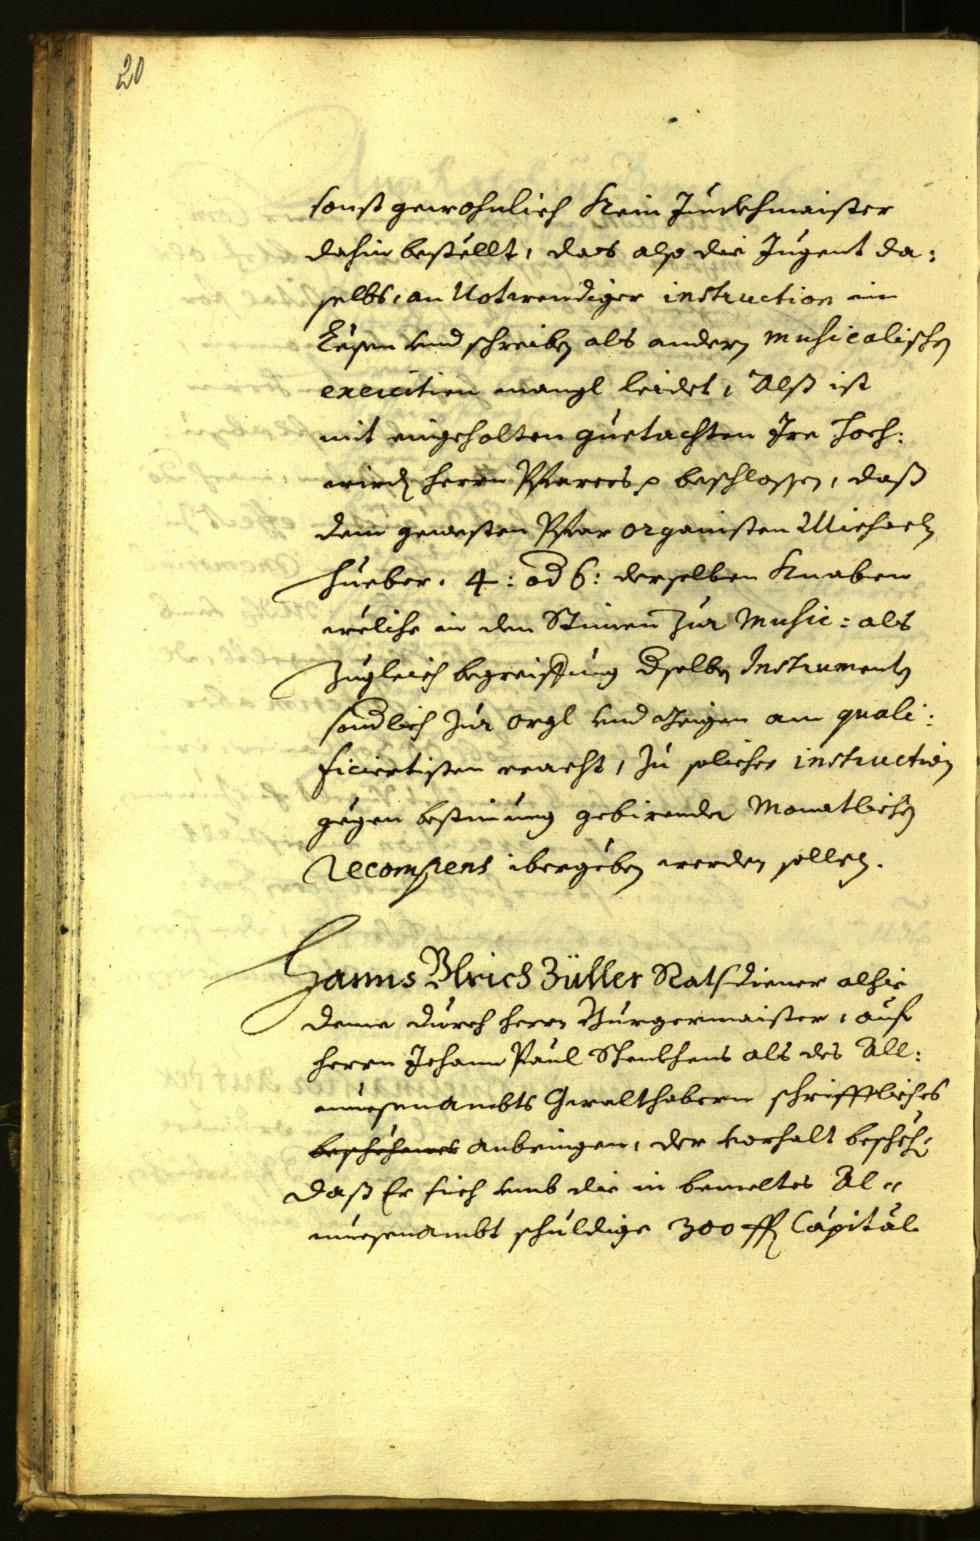 20
sonst gewohnlich Kein Junckhmaister
dahin bestellt, das also die Jugent da:
selbs, an Notwendiger instruction im
Lesen vnd schreiben als andern musicalischen
exercitien mangl leidet, Alß ist
mit eingeholten guetachten Jre Hoch:
wirdn Herrn Pfarrers p beschlossen, daß
dem gewesten Pfar organisten Michaeln
Hueber, 4: od 6: derselben Knaben
welche in den Stimen zur Music: als
zugleich begreiffung dselben Instrumenten
sondlich zur orgl vnd Geigen am quali:
ficiertisten macht, zu solicher instruction
gegen bestimung gebirender Monatlichen
Recompens ibergeben werden sollen.
Hanns Vlrich Züller Ratsdiener alhie
deme durch herrn Burgermaister, auf
herrn Johann Paul als des All:
muesenambts Gewalthabern schrifftliches
anbringen, der vorhalt beschehen
daß Er sich vmb die in bemeltes Al=
muesenambt schuldige 300 ff Capital